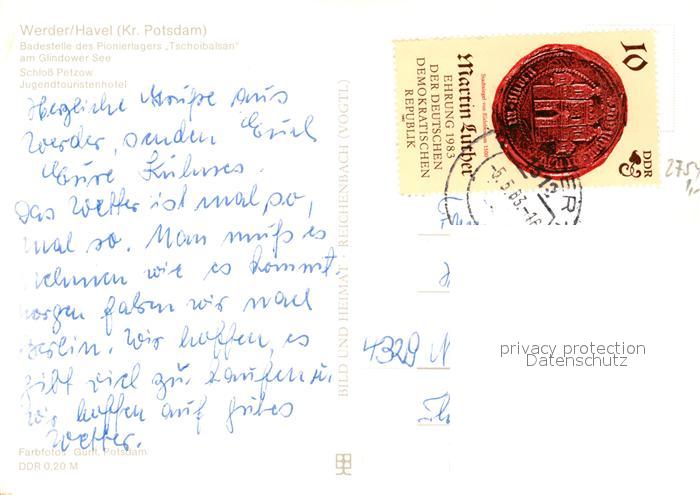 Werder/Havel (Kr. Potsdam)
Badestelle des Pionierlagers „Tschoibalsan"
am Glindower See
Schloß Petzow
Jugendtouristenhotel
Herzliche Grüße aus
Werder, senden Euch
Eure Kuhnes.
Das Wetter ist mal so,
mal so. Man muß es
nehmen wie es kommt.
Morgen fahren wir nach
Berlin. Wir hoffen, es
gibt viel zu kaufen u.
wir hoffen auf gutes
Wetter.
Farbfotos: Günt, Potsdam
DDR 0,20 M
BILD UND HEIMAT · REICHENBACH (VOGTL)
10
DDR
Stadtsiegel von Eisleben
Martin Luther
EHRUNG 1983
DER DEUTSCHEN
DEMOKRATISCHEN
REPUBLIK
1513
-5.5.83-16
2754
4329
privacy protection
Datenschutz